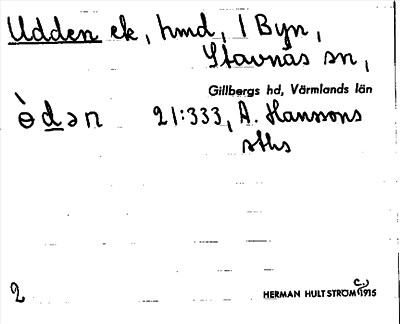 Udden ek, hmd, I Byn,
Stavnäs sn,
Gillbergs hd, Värmlands län
21:333, A. Hanssons
sths
2
HERMAN HULTSTRÖM 1915